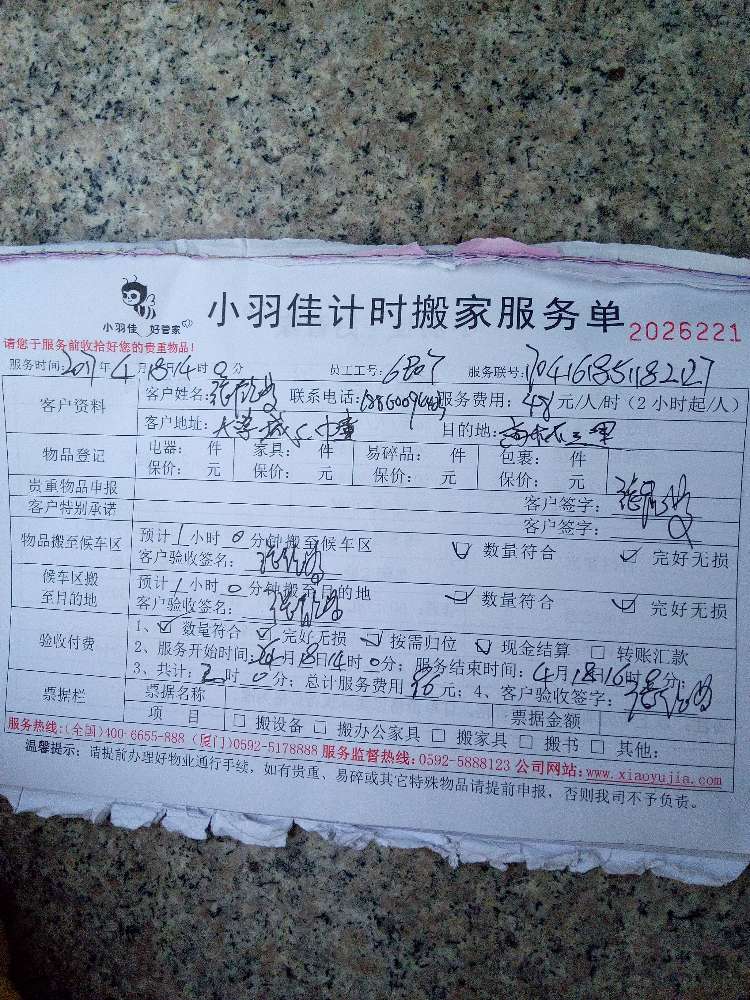 小羽佳 好管家
小羽佳计时搬家服务单 2026221
请您于服务前收拾好您的贵重物品!
服务时间: 2017年4月18日14时0分 员工工号: 6807 服务联号:
客户资料 客户姓名: 联系电话: 服务费用: 48元/人/时 (2小时起/人)
客户地址: 大学城 目的地:
物品登记 电器: 件 家具: 件 易碎品: 件 包裹: 件
保价: 元 保价: 元 保价: 元 保价: 元
贵重物品申报 客户签字:
客户特别承诺 客户签字:
物品搬至候车区 预计1小时0分钟搬至候车区 ☑ 数量符合 ☑ 完好无损
客户验收签名:
候车区搬至目的地 预计1小时0分钟搬至目的地 ☑ 数量符合 ☑ 完好无损
客户验收签名:
验收付费 1、☑ 数量符合 ☑ 完好无损 ☑ 按需归位 ☑ 现金结算 □ 转账汇款
2、服务开始时间: 4月18日14时0分; 服务结束时间: 4月18日16时0分;
3、共计: 2时0分; 总计服务费用 96元; 4、客户验收签字:
票据栏 票据名称 票据金额
项 目 □ 搬设备 □ 搬办公家具 □ 搬家具 □ 搬书 □ 其他:
服务热线:(全国)400-6655-888 (厦门)0592-5178888 服务监督热线:0592-5888123 公司网站:www.xiaoyujia.com
温馨提示: 请提前办理好物业通行手续, 如有贵重、易碎或其它特殊物品请提前申报, 否则我司不予负责。